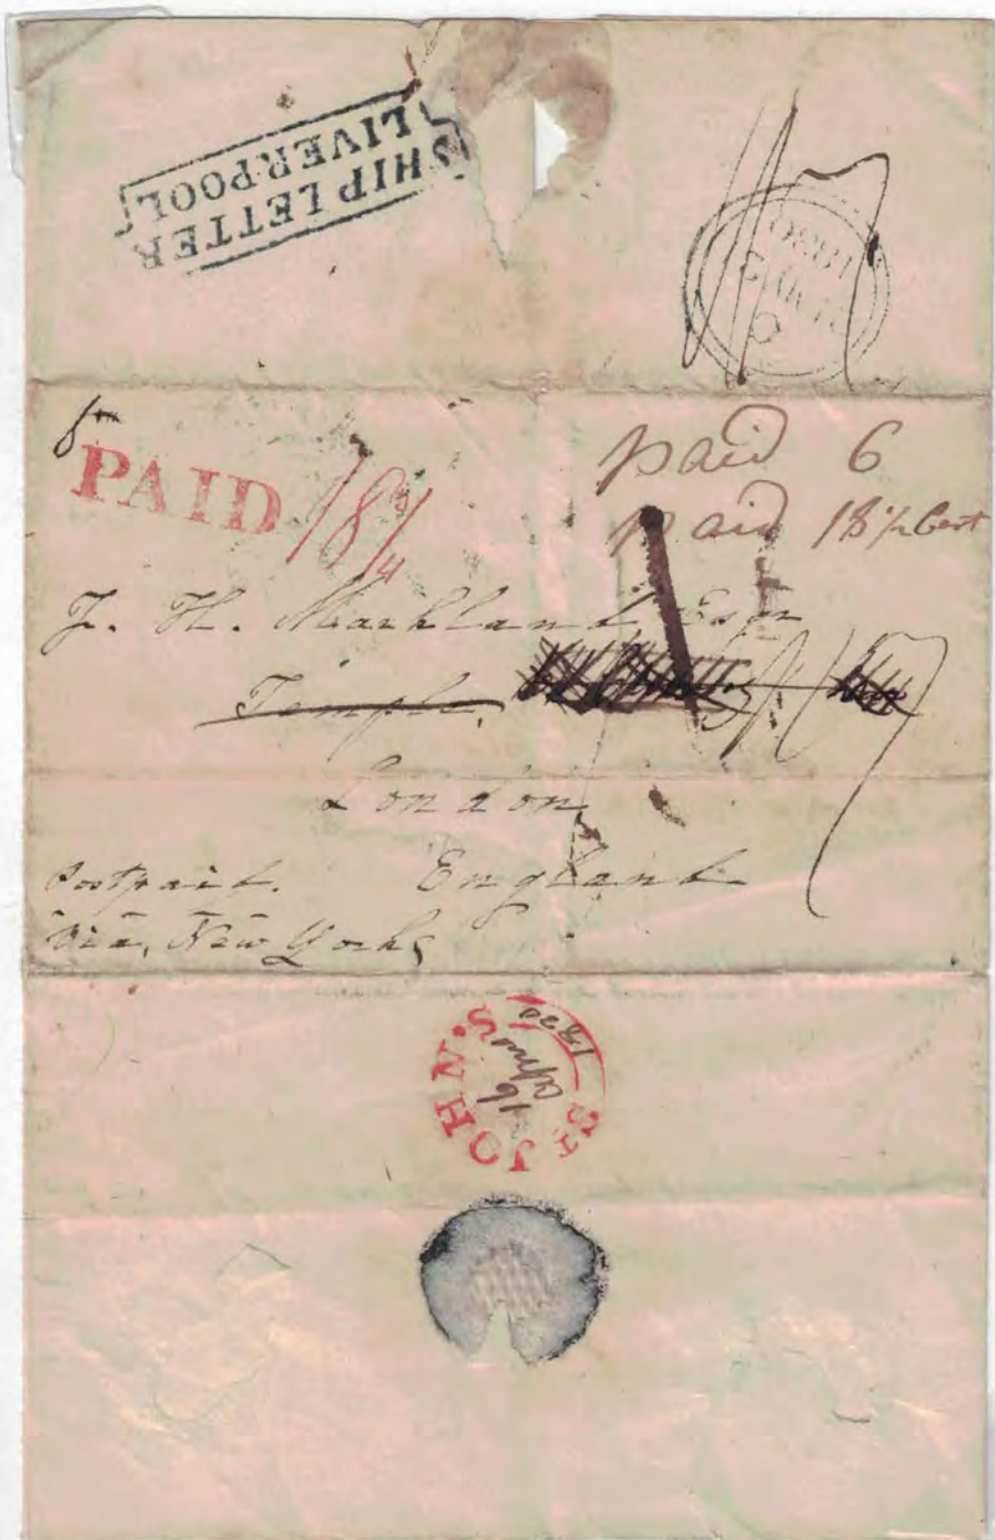 SHIP LETTER
LIVERPOOL
1830
PAID 18 3/4
paid 6
paid 18 1/2 Cent
J. H. Markland Esqr
Temple,
London
England
Postpaid.
Via, New York,
ST JOHN.S
16
1830